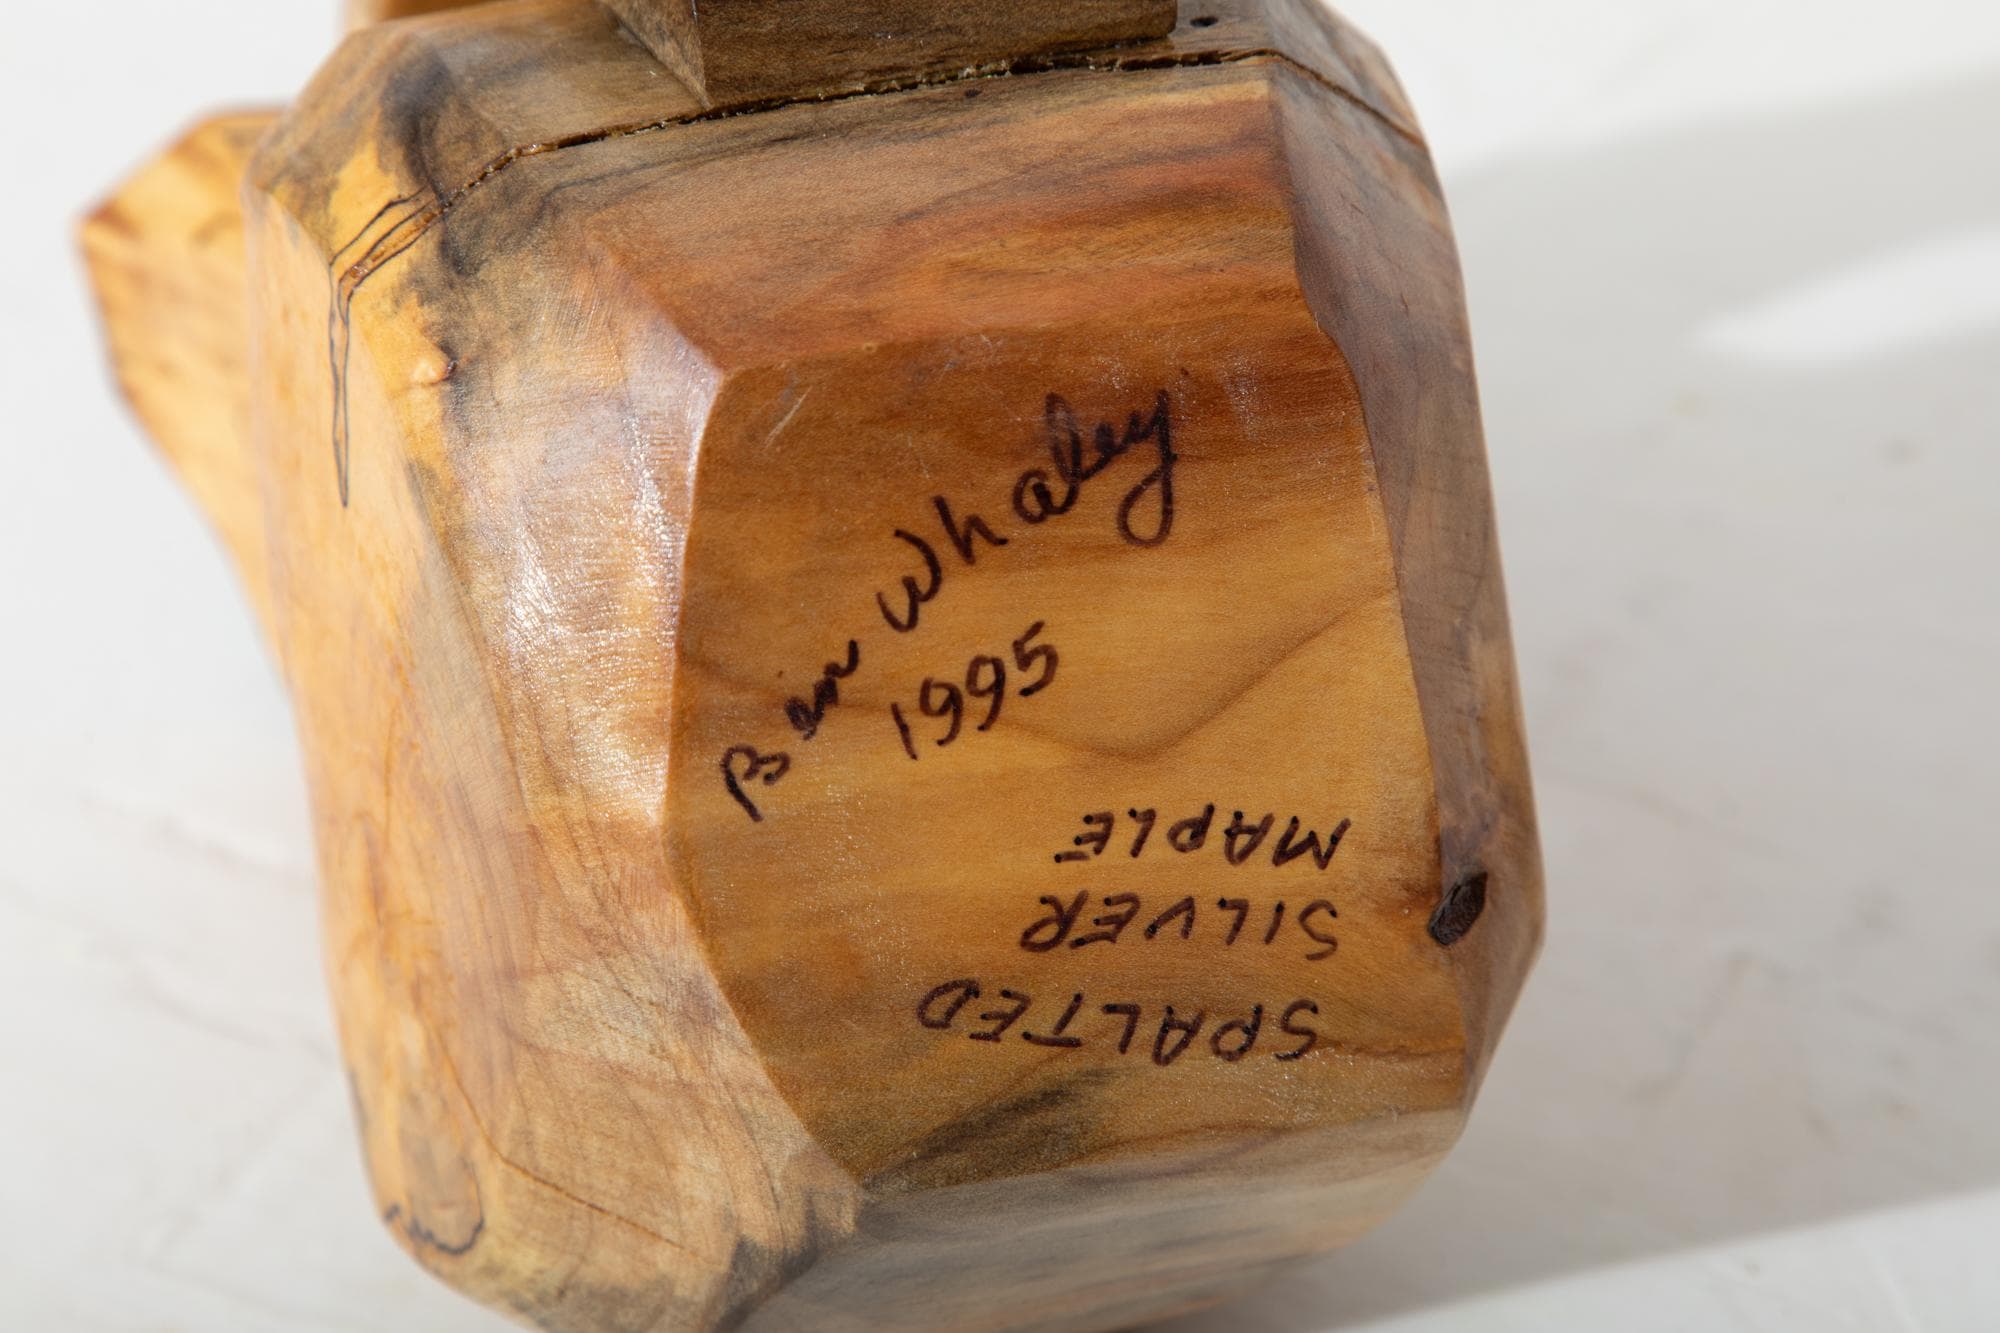 Ben Whaley
1995
SPALTED
SILVER
MAPLE